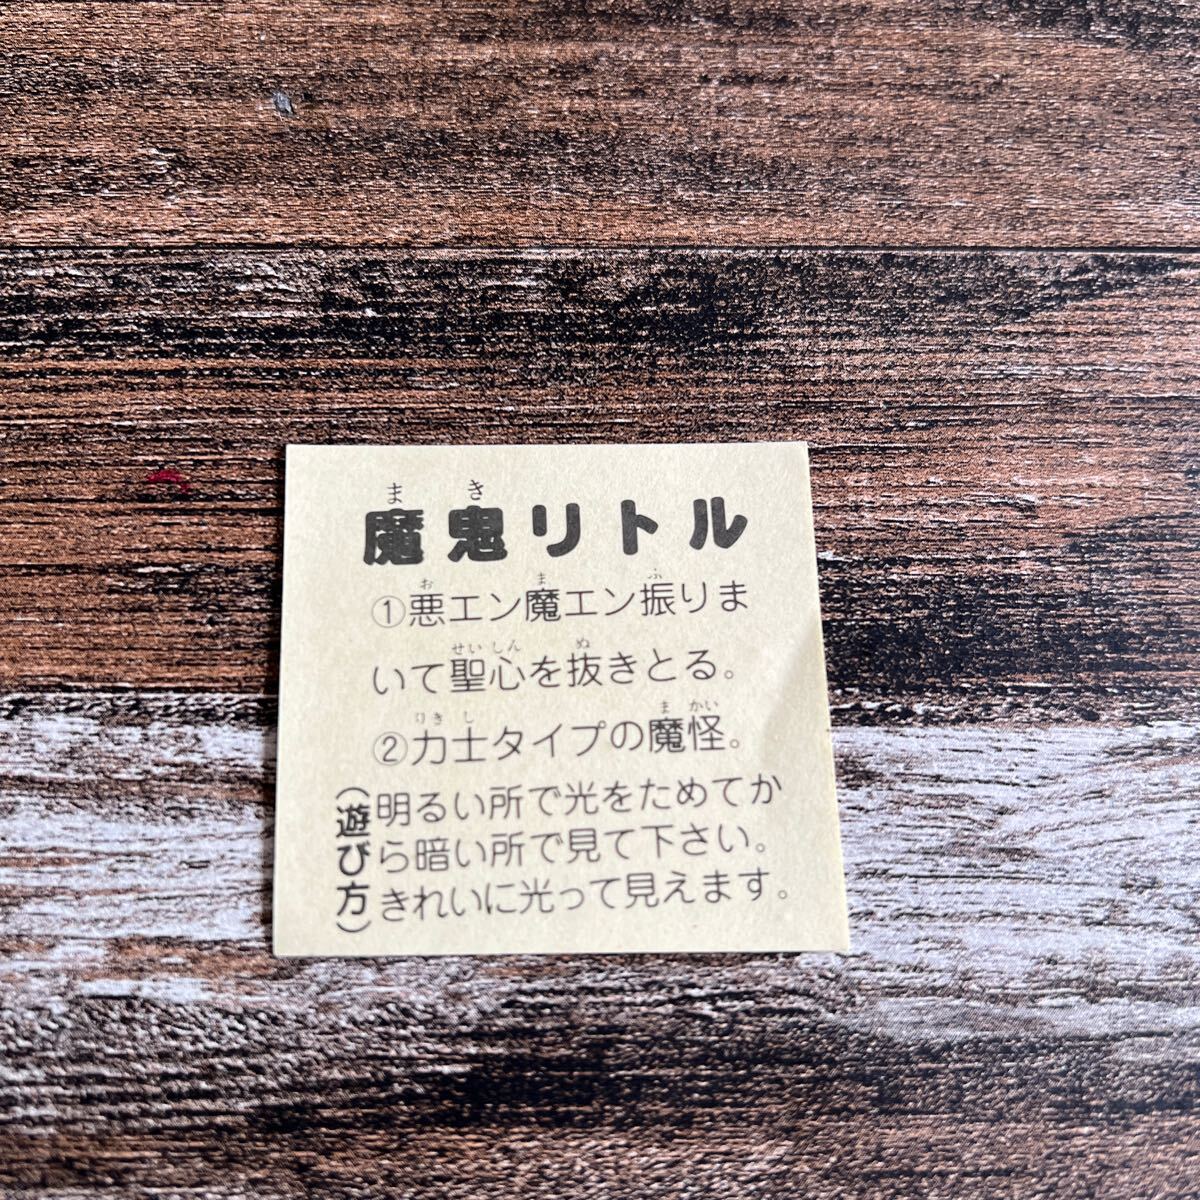 まき
魔鬼リトル
おまふ
①悪エン魔エン振りま
せいしんぬ
いて聖心を抜きとる。
りきしまかい
②力士タイプの魔怪。
(遊び方)
明るい所で光をためてか
ら暗い所で見て下さい。
きれいに光って見えます。